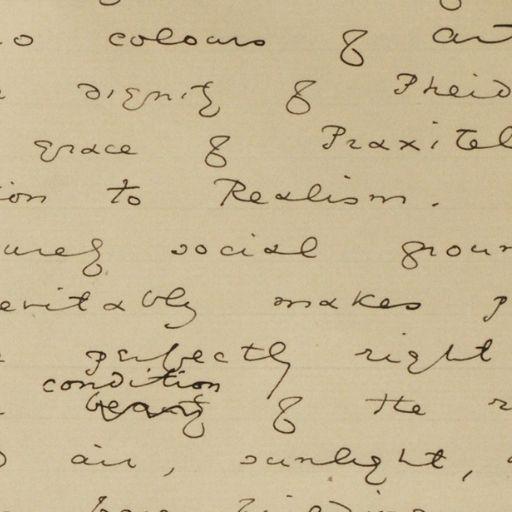 colours of art
dignity of Pheid
grace of Praxitel
ion to Realism.
urely social groun
evitably makes p
perfectly right
condition
beauty of the r
air, sunlight,